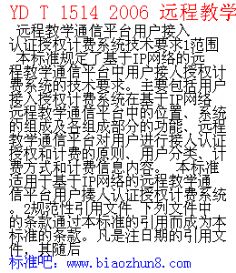 YD T 1514 2006 远程教学
、远程教学通信平台用户接入
认证授权计费系统技术要求1范围
 本标准规定了基于IP网络的远
程教学通信平台中用户接入授权计
费系统的技术要求。主要包括用户
接入授权计费系统在基于IP网络
远程教学通信平台中的位置、系统
的组成及各组成部分的功能、远程
教学通信平台对用户进行接入认证
授权和计费的原则、用户分类、计
费方式和计费信息内容。 本标准
适用于基于IP网络的远程教学通
信平台用户接入认证授权计费系统
。2规范性引用文件 下列文件中
的条款通过本标准的引用而成为本
标准的条款。凡是注日期的引用文
件，其随后
标准吧：www.biaozhun8.com